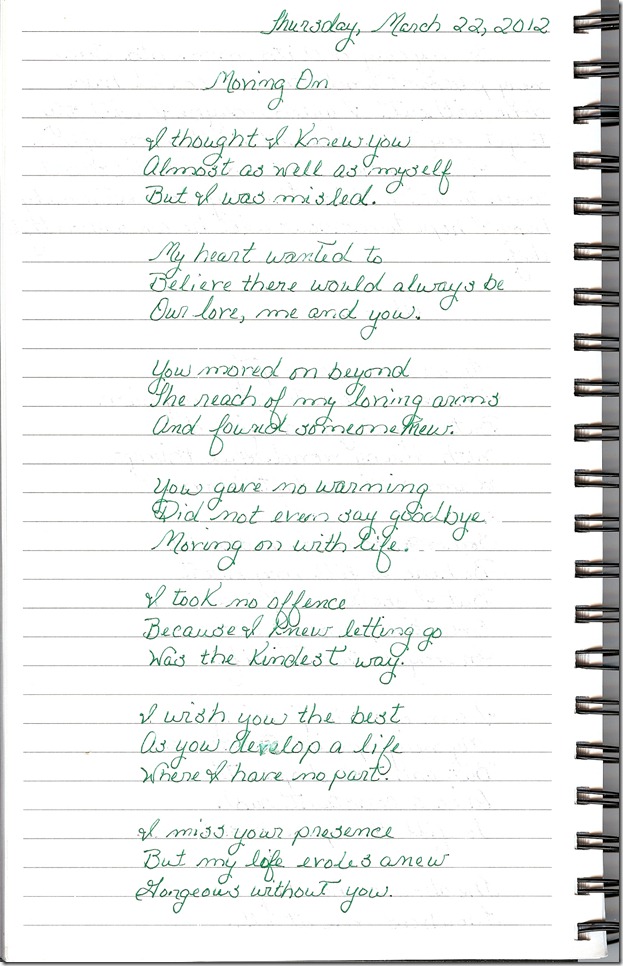 Thursday, March 22, 2012
Moving On
I thought I knew you
Almost as well as myself
But I was misled.
My heart wanted to
Believe there would always be
Our love, me and you.
You moved on beyond
The reach of my loving arms
And found someone new.
You gave no warning
Did not even say goodbye
Moving on with life.
I took no offence
Because I knew letting go
Was the kindest way.
I wish you the best
As you develop a life
Where I have no part.
I miss your presence
But my life evolves anew
Gorgeous without you.